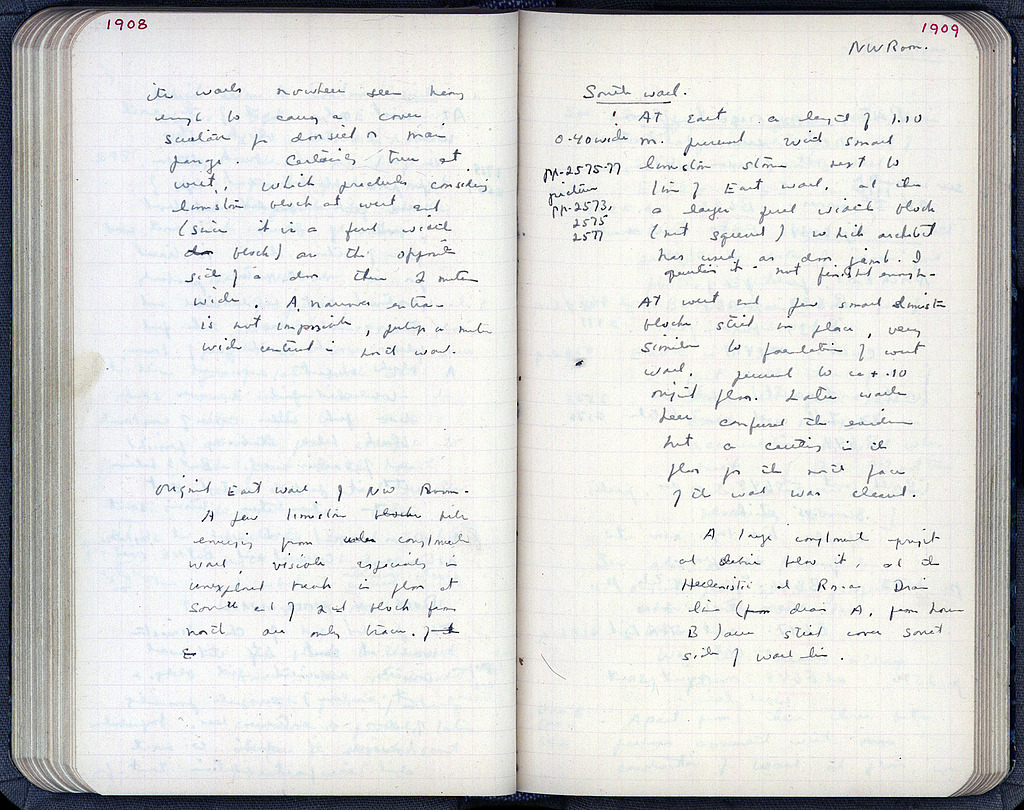 1908
its walls nowhere seem heavy
enough to carry a cover
 for
 . Certainly true at
west, which precludes considering
limestone block at west end
(since it is a full width
block) as the opposite
side of a door then 2 meters
wide. A narrower entrance
is not impossible, perhaps a meter
wide centered in north wall.
Original East wall of NW Room.
A few limestone blocks still
emerging from under conglomerate
wall visible especially in
unexplored trench in floor at
South end of 2nd block from
north are only traces.
1909
NW Room.
South wall.
At East a length of 1.10
0.40 wide
m. preserved with small
pp. 2575-77
limestone stones next to
picture
line of East wall, at the
pp. 2573,
a larger full width block
2575
(not squared) which architect
2577
has used as door jamb. I
question it - not finished enough.
At west end few small limestone
blocks still in place, very
similar to foundation of west
wall, preserved to ca + .10
original floor. Later walls
here confused the evidence
but a cutting in the
floor for the north face
of the wall was cleared.
A large conglomerate project
at debris below it, at the
Hellenistic and Roman Drain
line (from drain A, from house
B) over still cover south
side of wall line.